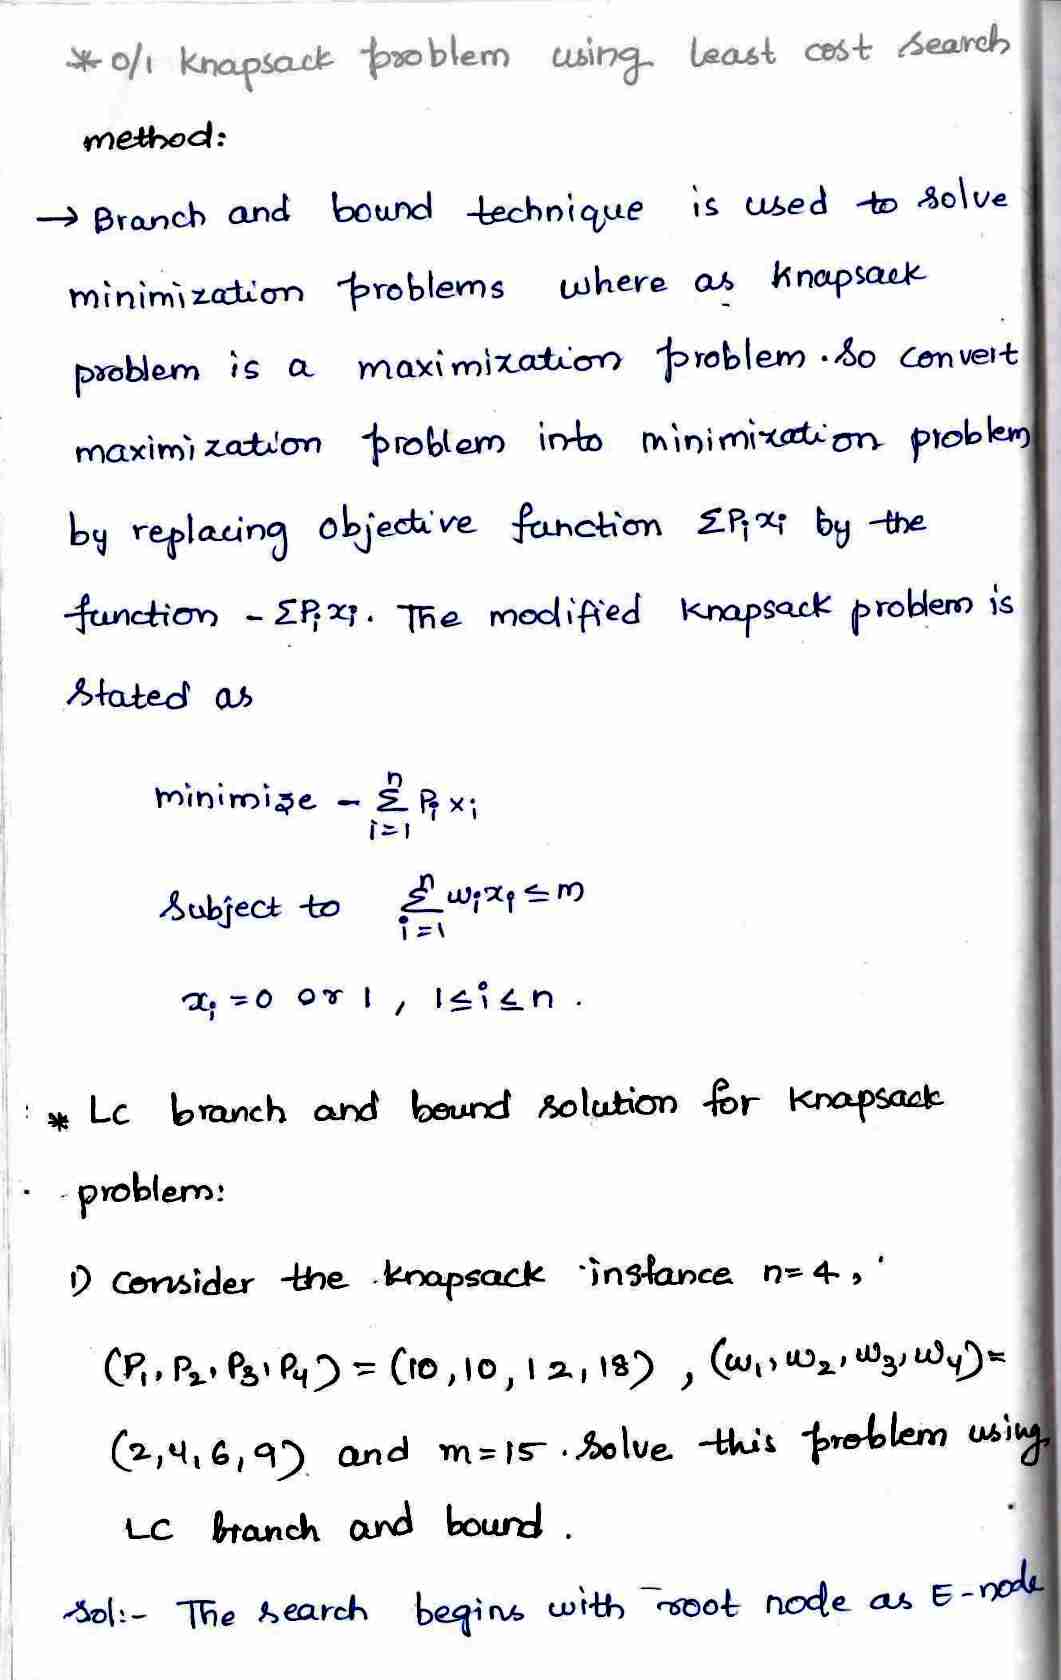 * 0/1 knapsack problem using least cost search
method:
→ Branch and bound technique is used to solve
minimization problems where as knapsack
problem is a maximization problem. So convert
maximization problem into minimization problem
by replacing objective function ΣPixi by the
function - ΣPixi. The modified knapsack problem is
stated as
minimize - n Σ i=1 Pi xi
Subject to n Σ i=1 wixi ≤ m
xi = 0 or 1, 1≤i≤n.
* LC branch and bound solution for knapsack
problem:
1) consider the knapsack instance n=4,
(P1, P2, P3, P4) = (10,10,12,18), (w1, w2, w3, w4) =
(2,4,6,9) and m=15. Solve this problem using
LC branch and bound.
Sol:- The search begins with root node as E-node